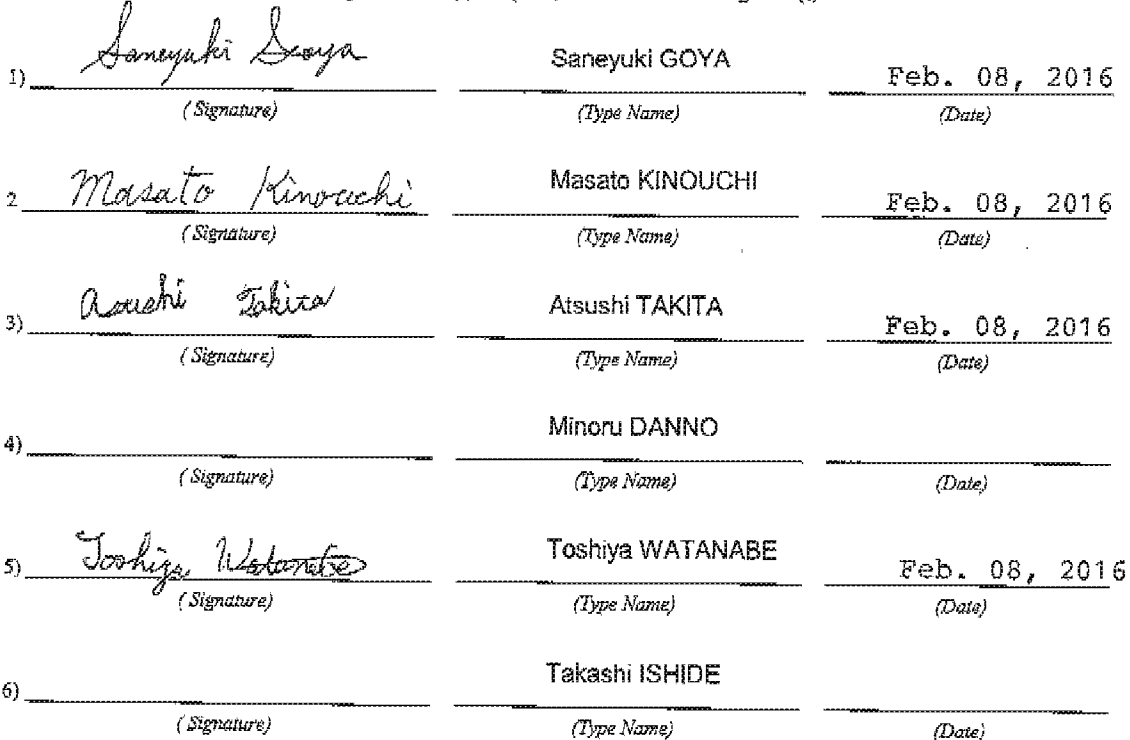 Saneyuki Goya Saneyuki GOYA Feb. 08, 2016
1)
(Signature) (Type Name) (Date)
Masato Kinouchi Masato KINOUCHI Feb. 08, 2016
2
(Signature) (Type Name) (Date)
Atsushi Takita Atsushi TAKITA Feb. 08, 2016
3)
(Signature) (Type Name) (Date)
Minoru DANNO
4)
(Signature) (Type Name) (Date)
Toshiya Watanabe Toshiya WATANABE Feb. 08, 2016
5)
(Signature) (Type Name) (Date)
Takashi ISHIDE
6)
(Signature) (Type Name) (Date)